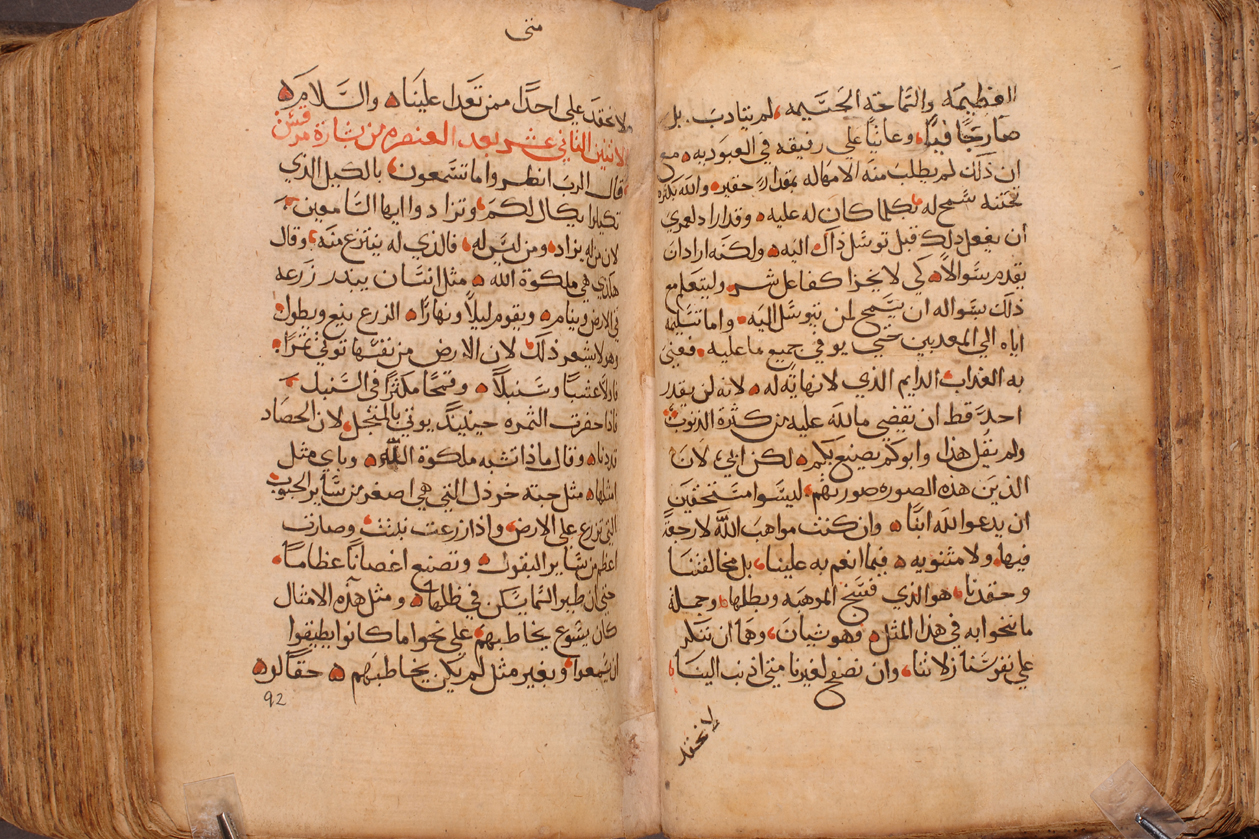 العظيمه والسماحة الجسيمه لم يتادب بل
صار جافيًا وعاتيًا على رفيقه في العبوديه مع
ان ذلك لم يطلب منه الا مهاله بمقدار حقير والله بكثرة
تحننه سمح له بكلما كان له عليه وقد اراد لعمري
ان يفعل ذلك قبل توسل ذاك اليه ولكنه اراد ان
يقدم سوالاً كي لا يجزا كفاعل شر وليتعلم مع
ذلك بسواله ان يسمح لمن يتوسل اليه واما تسليمه
اياه الي المعدبين حتي يوفي جميع ما عليه فعني
به العذاب الدايم الذي لا نهاية له لانه لن يقدر
احد قط ان يقضي ما لله عليه من كثرة الذنوب
ولم يقل هذا وابوكم يصنع بكم لكن ابي لان
الذين هذه الصوره صورتهم ليسوا مستحقين
ان يدعوا لله ابنًا وان كنت مواهب الله لا رجعة
فيها ولا مثنويه فيما انعم به علينا بل مخالفتنا
وحقدنا هو الذي فسخ الموهبه وبطلها وجملة
ما نحوا به في هذا المثل فهو شيان وهما ان نتنكر
علي نفوسنا زلاتنا وان نصفح لغيرنا متي اذنب الينا
لا نحقد
متى
ولا نحقد على احدًا ممن تعدا علينا والسلام
الاثنين الثاني عشر بعد العنصره من بشارة مرقس
قال الرب انظروا ما تسمعون بالكيل الذي
تكيلوا يكال لكم وتزادوا ايها السامعين
لان من له يزاد ومن ليس له فالذي له ينتزع منه وقال
هكذي هي ملكوة الله مثل انسان يبدر زرعه
في الارض وينام ويقوم ليلاً ونهارًا الزرع ينبع ويطول
وهو لا يشعر ذلك لان الارض من نفسها توتي ثمرًا
فاولا عشبًا وسنبلاً وقمحًا مكثرًا في السنبل
فاذا حضرت الثمره حينيذ يوتي بالمنجل لان الحصاد
قد دنا وقال ماذا تشبه ملكوة الله وباي مثل
امثلها مثل حبة خردل التي هي اصغر من ساير الحبوب
التي تزرع على الارض واذا زرعت نبتت وصارت
اعظم من ساير البقول وتصنع اغصانًا عظامًا
حتى ان طير السما يسكن في ظلها ومثل هذه الامثال
كان يسوع يخاطبهم على نحوا ما كانوا يطيقوا
ان يسمعوا وبغير مثل لم يكن يخاطبهم حقًا
92